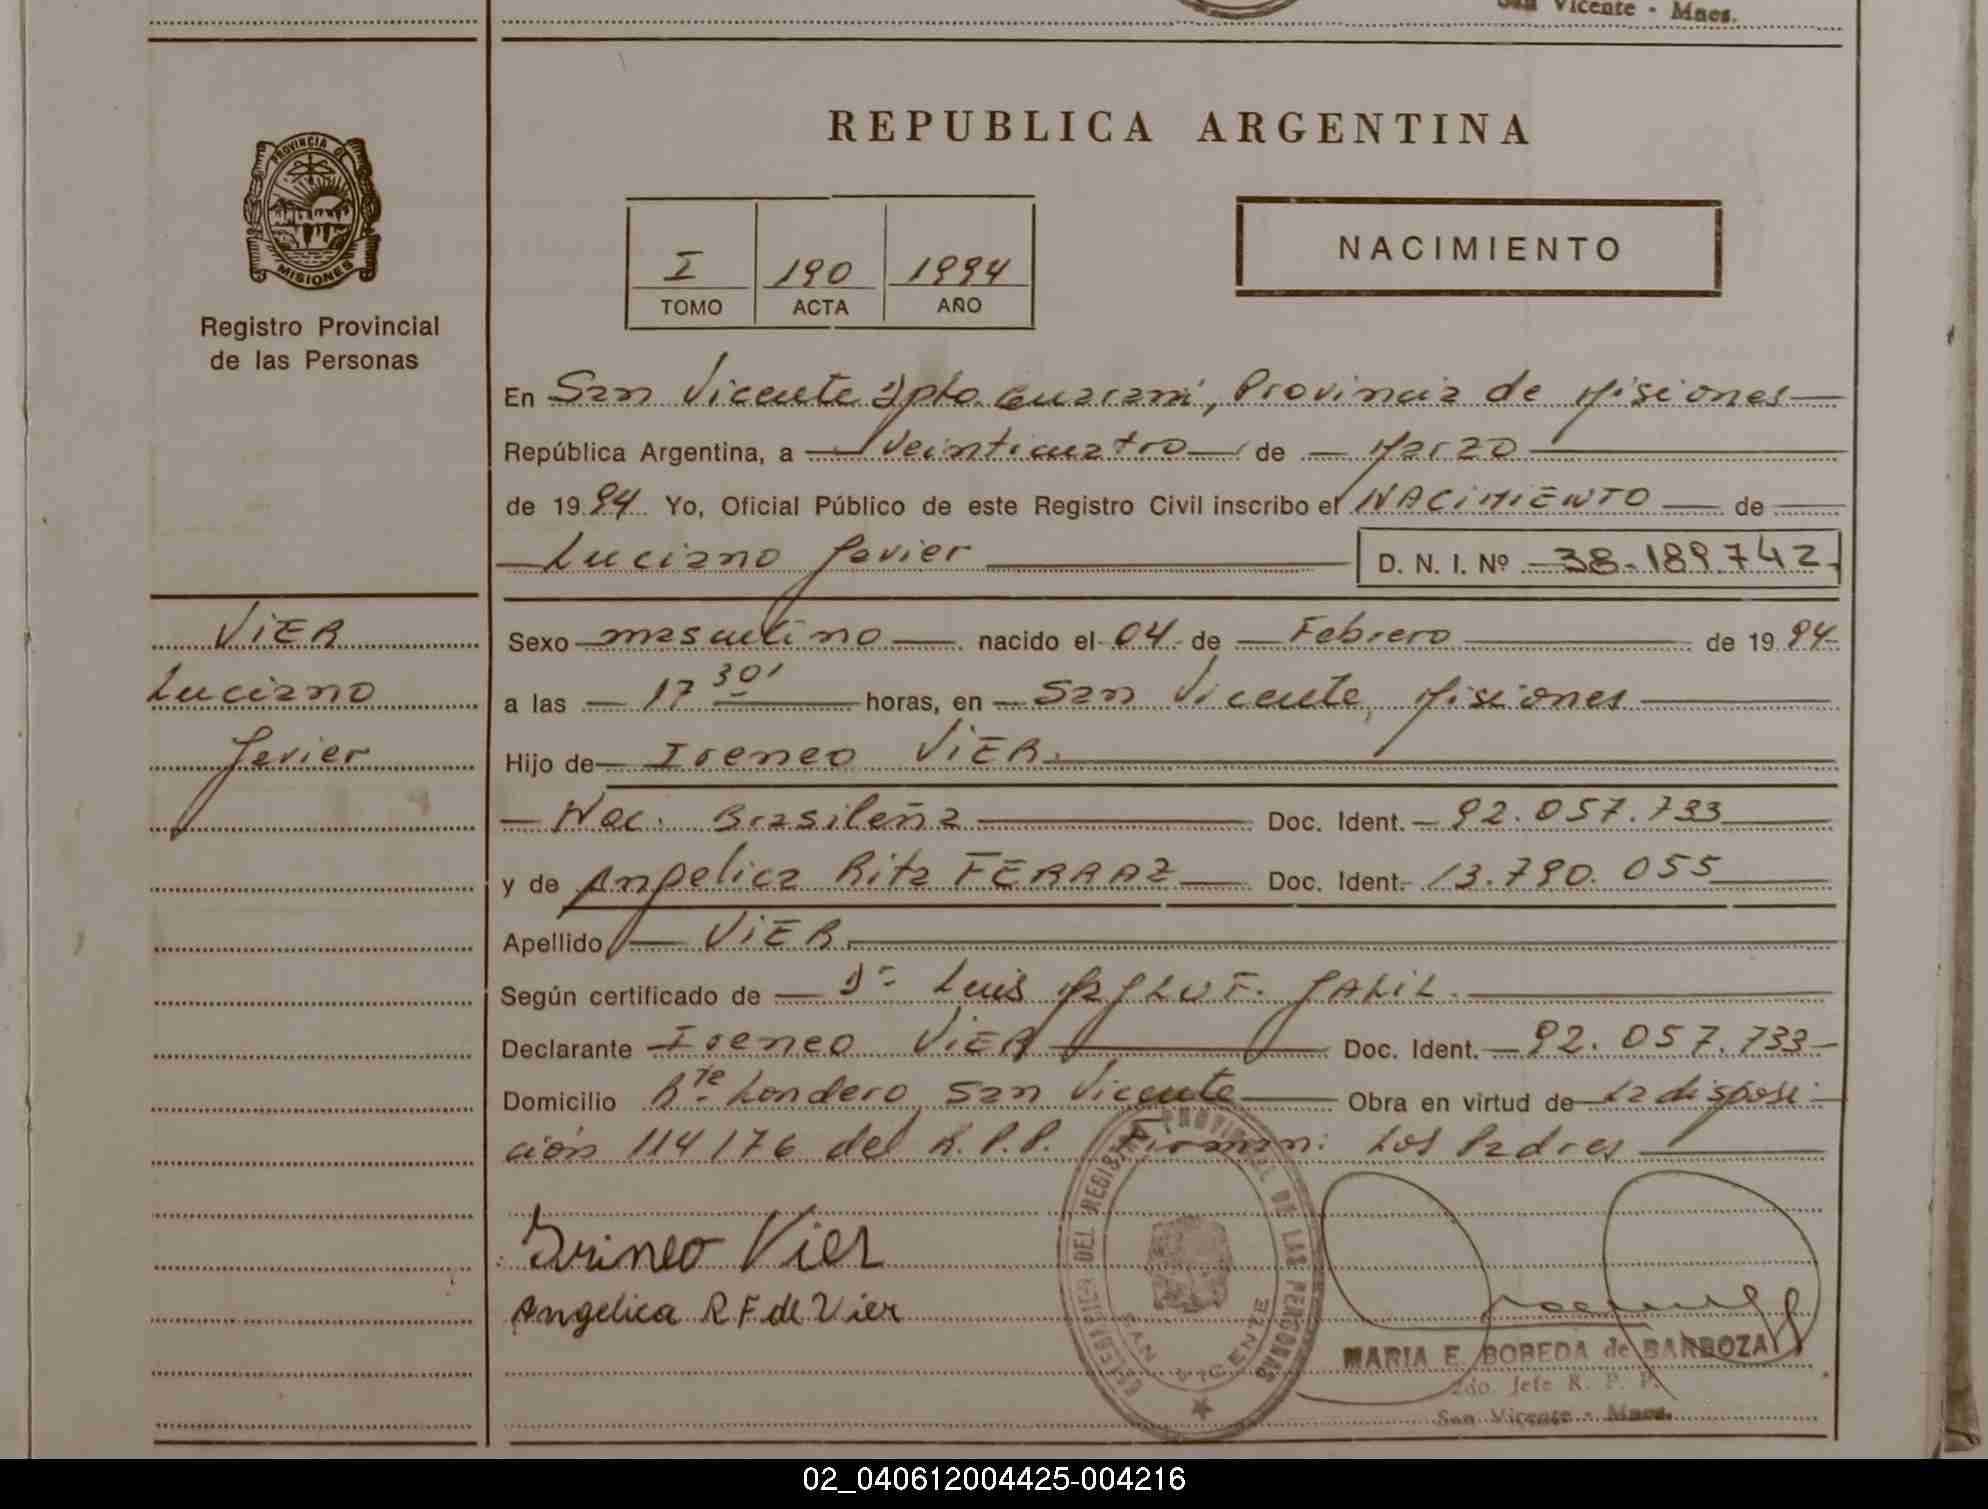 San Vicente - Mnes.
PROVINCIA DE
MISIONES
Registro Provincial
de las Personas
REPUBLICA ARGENTINA
I 190 1994
TOMO ACTA AÑO
NACIMIENTO
En San Vicente Dpto. Guarani, Provincia de Misiones
República Argentina, a veinticuatro de Marzo
de 1994 Yo, Oficial Público de este Registro Civil inscribo el NACIMIENTO de
Luciano Javier D. N. I. Nº 38.189.742
VIER
Luciano
Javier
Sexo masculino nacido el 04 de Febrero de 1994
a las 17 30' horas, en San Vicente, Misiones
Hijo de Ireneo VIER.
Nac. Brasileña Doc. Ident. 92.057.733
y de Angelica Rita FERRAZ Doc. Ident. 13.790.055
Apellido VIER
Según certificado de Dr Luis JALIL.
Declarante Ireneo VIER Doc. Ident. 92.057.733
Domicilio Londero, San Vicente Obra en virtud de la disposi
ción 114/76 del R.P.P. Firman: Los Padres
Irineo Vier
Angelica R F. de Vier
DEL REGISTRO PROVINCIAL DE LAS PERSONAS
SAN VICENTE
MARIA E. BOBEDA de BARBOZA
2do. Jefe R. P. P.
San Vicente - Mnes.
02_040612004425-004216